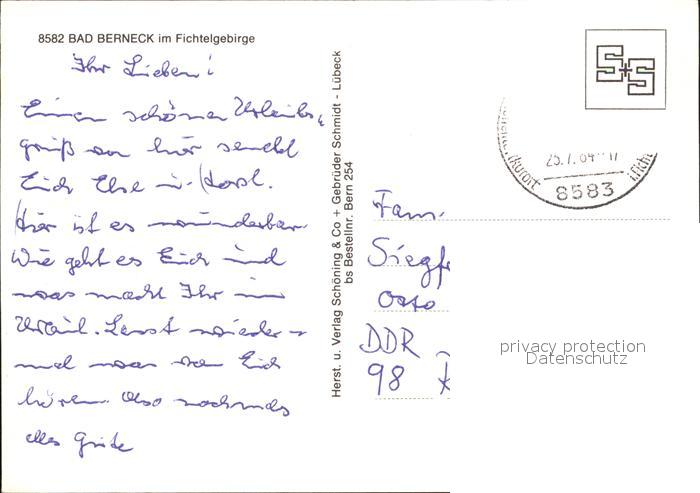 8582 BAD BERNECK im Fichtelgebirge
Ihr Lieben!
Einen schönen Urlaubs-
gruß von hier sendet
Euch Else u. Horst.
Hier ist es wunderbar.
Wie geht es Euch und
was macht Ihr im
Urlaub. Lasst wieder
mal was von Euch
hören. Also nochmals
alles Gute
Herst. u. Verlag Schöning & Co + Gebrüder Schmidt - Lübeck
bs Bestellnr. Bern 254
S+S
kurort
8583
Fam.
Siegfr
Otto
DDR
98 K
privacy protection
Datenschutz